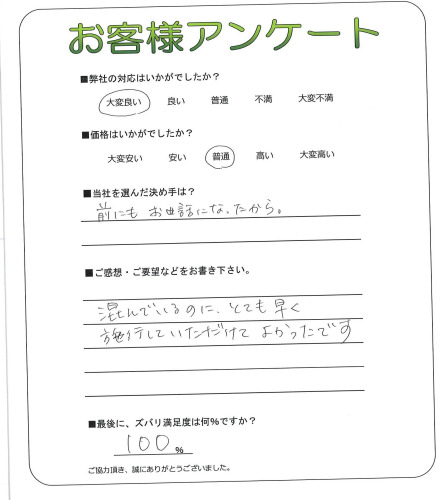 お客様アンケート
■弊社の対応はいかがでしたか?
大変良い 良い 普通 不満 大変不満
■価格はいかがでしたか?
大変安い 安い 普通 高い 大変高い
■当社を選んだ決め手は?
前にも お世話になったから。
■ご感想・ご要望などをお書き下さい。
混んでいるのに、とても早く
施行していただけて よかったです
■最後に、ズバリ満足度は何%ですか?
100%
ご協力頂き、誠にありがとうございました。